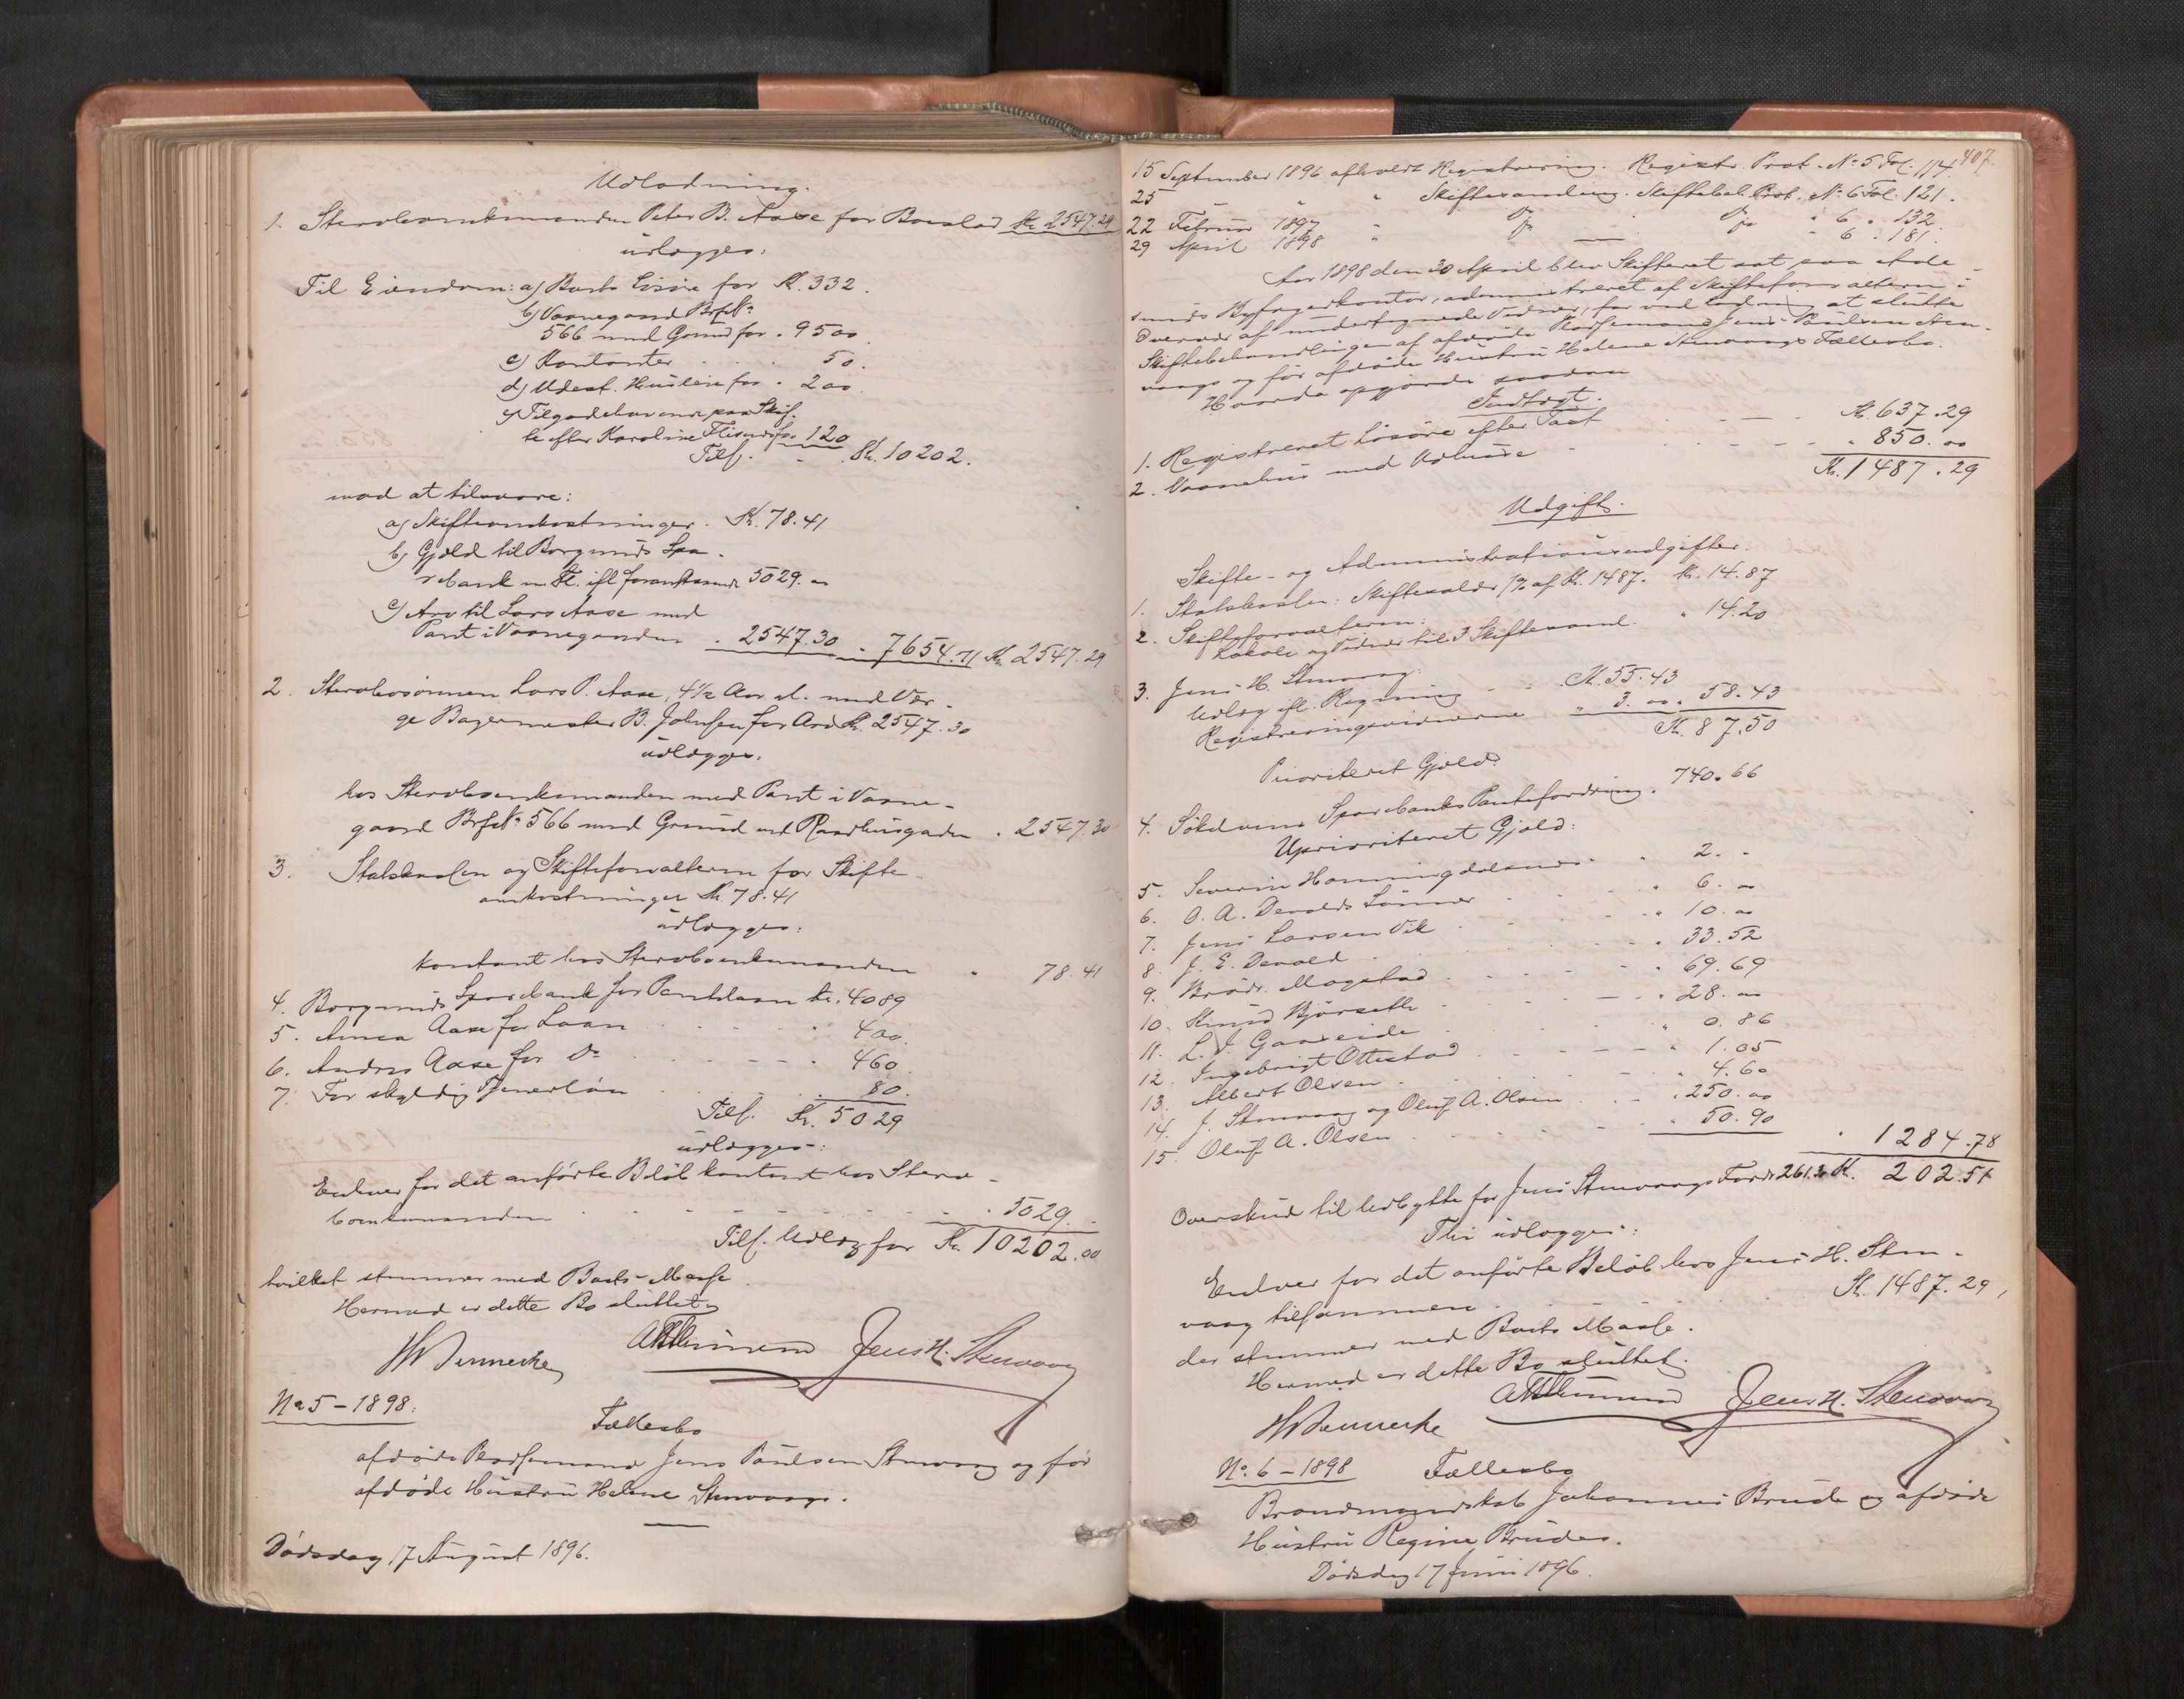 Udlodning.
1. Stervboenkemanden Peter B. Aase for Boeslod Kr. 2547.29
udlægges:
Til Eiendom: a) Boets Løsøre for Kr. 332.
b) Vaanegaard Brfk.
566 med Grund for " 9500.
c) Kontanter . . . 50.
d) Udest. Husleie for " 200.
e) Tilgodehavende paa Skif-
te efter Karoline 120
Tils. . . Kr. 10202.
mod at tilsvare:
a) Skifteomkostninger. Kr. 78.41
b) Gjæld til Borgunds Spa-
rebank m. Fl. ifl. foranstaaende 5029. 00
c) Arv til Lars Aase med
Pant i Vaanegaarden . 2547.30 " 7654.71 Kr. 2547.29
2. Stervbosønnen Lars P. Aase, 4½ Aar gl. med Vær-
ge Bagermester B. Johnsen for Arv Kr. 2547.30
udlægges.
hos Stervboenkemanden med Pant i Vaane-
gaard Brfk. 566 med Grund ved Raadhusgaden . 2547.30
3. Statskassen og Skifteforvalteren for Skifte-
omkostninger Kr. 78.41
udlægges:
kontant hos Stervboenkemanden " 78.41
4. Borgunds Sparebank for Pantelaan Kr. 4089
5. Anna Aase for Laan . . . " 400.
6. Andres Aase for Do . . . " 460.
7. For skyldig Tjenerløn . . . 80.
Tils. Kr. 5029
udlægges:
Enhver for det anførte Beløb kontant hos Sterv-
boenkemanden . . . " 5029.
Tils. Udlæg for Kr. 10202.00
hvilket stemmer med Boets Masse.
Hermed er dette Bo sluttet.
Jens H. Stenvaag
No 5 - 1898.
Fællesbo
afdøde Pladsemand Jens Paulsen Stenvaag og før
afdøde Hustru Helene Stenvaags.
Dødsdag 17 August 1896.
407.
15 September 1896 afholdt Registrering. Registr. Prot. No 5 Fol. 114.
25 " " " Skiftesamling. Skiftebeh. Prot. No 6 Fol. 121.
22 Februar 1897 " Do " Do " 6 " 132.
29 April 1898 " Do " Do " 6 " 181.
Aar 1898 den 30 April blev Skifteret sat paa Aale-
sunds Byfogedkontor, administreret af Skifteforvalteren i
Overvær af undertegnede Vidner, for ved Lodning at slutte
Skiftebehandlingen af afdøde Pladsemand Jens Paulsen Sten-
vaags og før afdøde Hustru Helene Stenvaags Fællesbo.
Hvorda opgjordes saadan
Indtægt.
1. Registreret Løsøre efter Taxt . . . Kr. 637.29
2. Vaanehus med Udhuse . . . " 850.00
Kr. 1487.29
Udgift.
Skifte- og Administrationsudgifter.
1. Statskassen: Skifteafgift 1% af Kr. 1487. Kr. 14.87
2. Skifteforvalteren:
Lokale og Vidner til 3 Skiftesaml. " 14.20
3. Jens H. Stenvaag:
Udlæg ifl. Regning . . . Kr. 55.43
Registreringsvidnerne " 3.00 " 58.43
Kr. 87.50
Prioriteret Gjæld.
4. Søkelvens Sparebanks Pantefordring. 740.66
Uprioriteret Gjæld:
5. Severin Honningdalsnes . " 2. -
6. O. A. Devolds Sønner . . . " 6. 00
7. Jens Larsen Vik . . . " 10. 00
8. J. E. Devold . . . " 33.52
9. Brødr. Magstad . . . " 69.69
10. Knud Bjørseth . . . " 28. 00
11. L. J. Gaaseide . . . " 0.86
12. Ingebrigt Ottestad . . . " 1.05
13. Albert Olsen . . . " 4.60
14. J. Stenvaag og Oluf A. Olsen . . . " 250.00
15. Oluf A. Olsen . . . " 50.90
" 1284.78
Overskud til Udbytte for Jens Stenvaags Fordr. 261.30 Kr. 202.51
Thi udlægges:
Enhver for det anførte Beløb hos Jens H. Sten-
vaag tilsammen . . . Kr. 1487.29,
der stemmer med Boets Masse.
Hermed er dette Bo sluttet.
Jens H. Stenvaag
No. 6 - 1898 Fællesbo
Brandmandskab Johannes Brude og afdøde
Hustru Regine Brudes.
Dødsdag 17 Juni 1896.